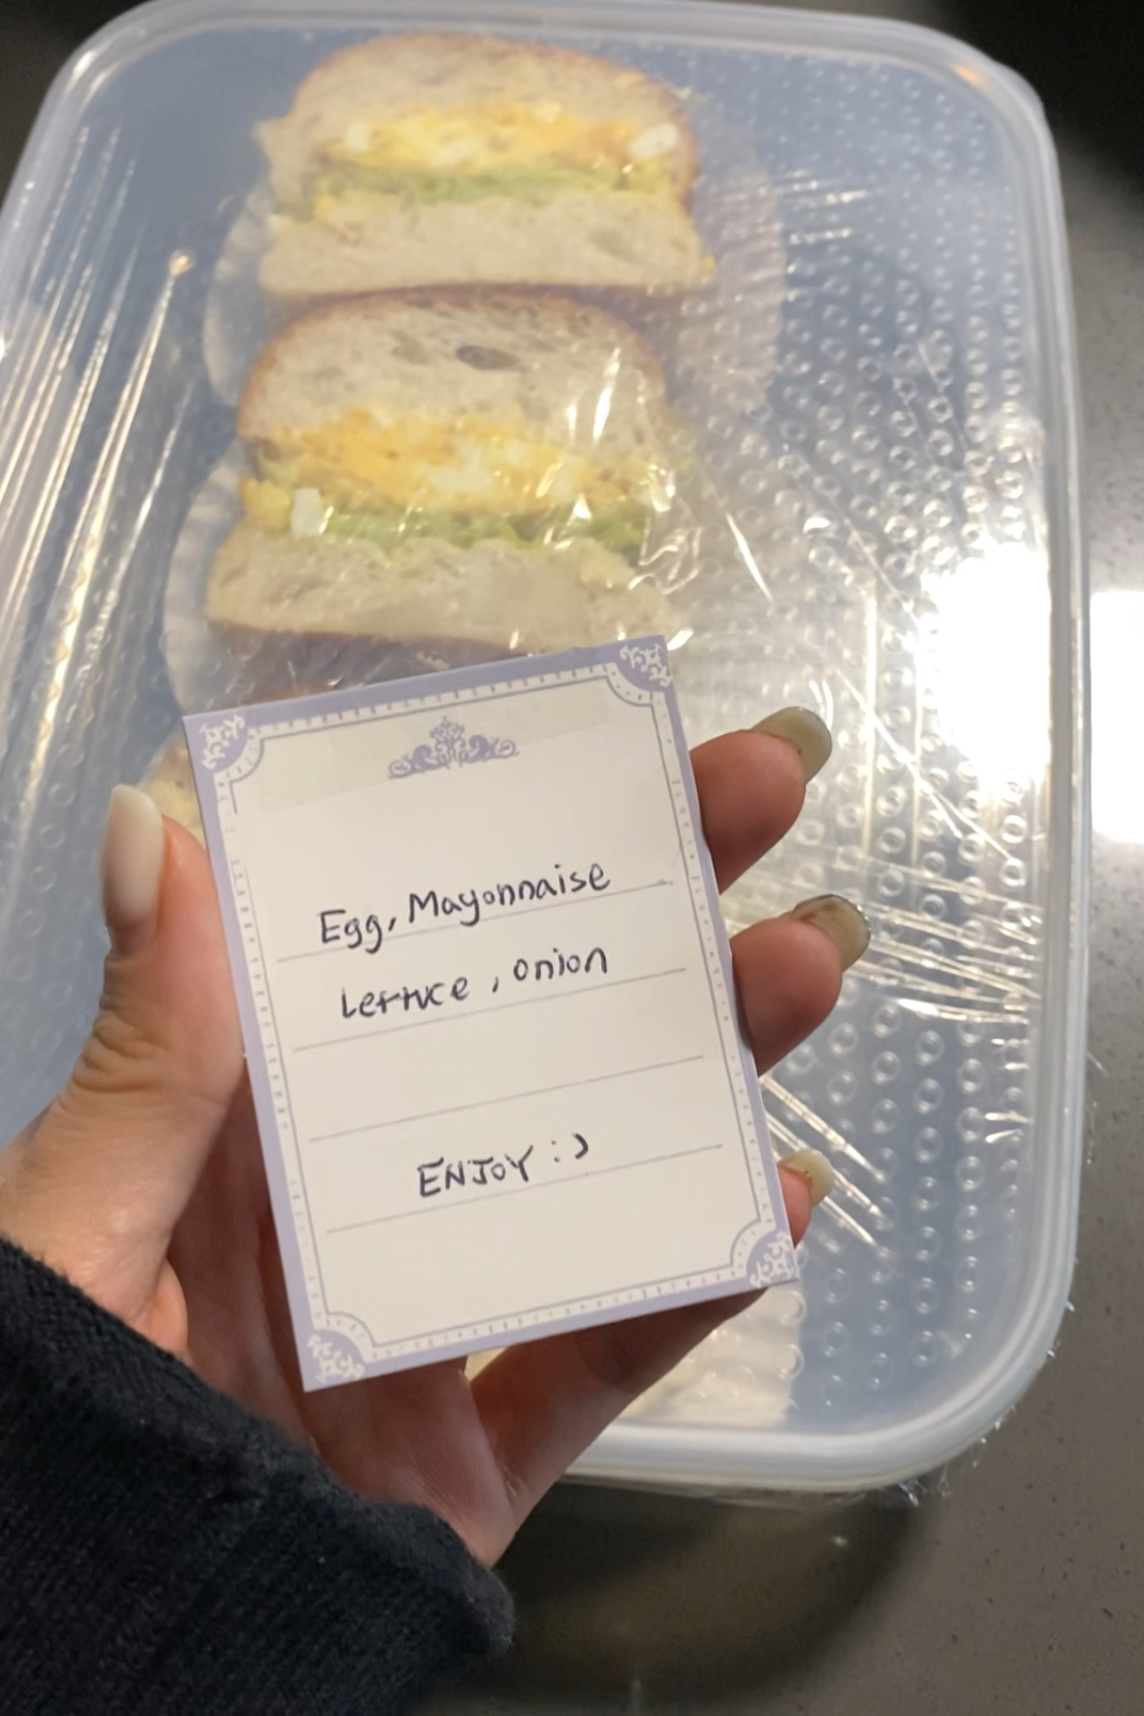 Egg, Mayonnaise
Lettuce, onion
ENJOY :)